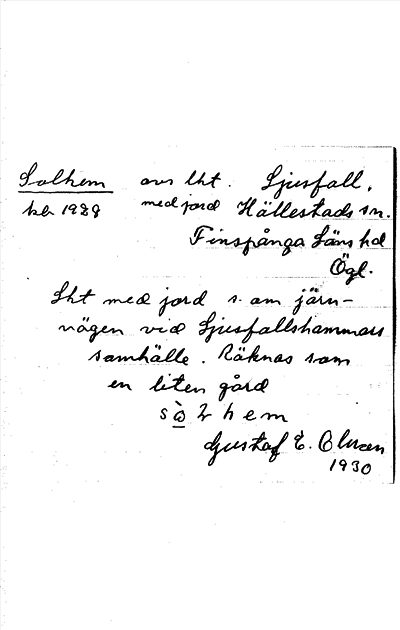 Solhem avs lht. Ljusfall,
med jord Hällestads sn.
Finspånga Läns hd
Ögl.
Lht med jord s. om järn-
vägen vid Ljusfallshammars
samhälle. Räknas som
en liten gård
Gustaf E. Olsson
1930